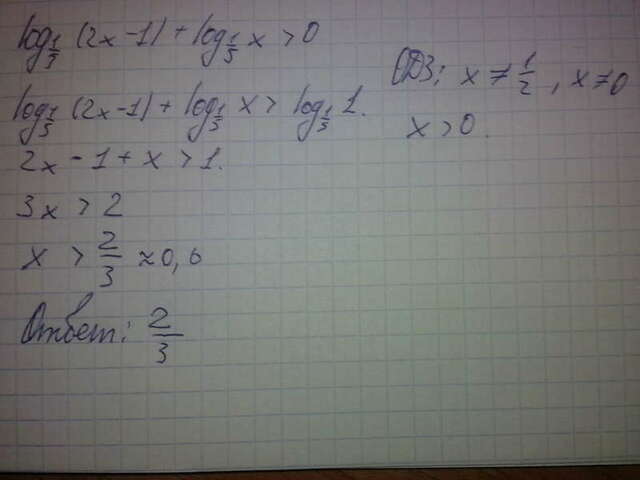 log_{1/3} (2x - 1) + log_{1/3} x > 0
ОДЗ: x ≠ 1/2, x ≠ 0
x > 0.
log_{1/3} (2x - 1) + log_{1/3} x > log_{1/3} 1.
2x - 1 + x > 1.
3x > 2
x > 2/3 ≈ 0,6
Ответ: 2/3